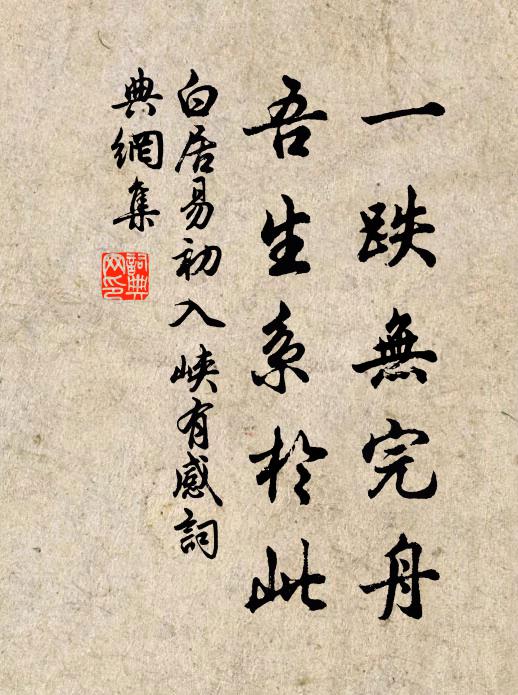 一跌無完舟
吾生系於此
白居易初入峽有感詞
典網集
詞典
网印